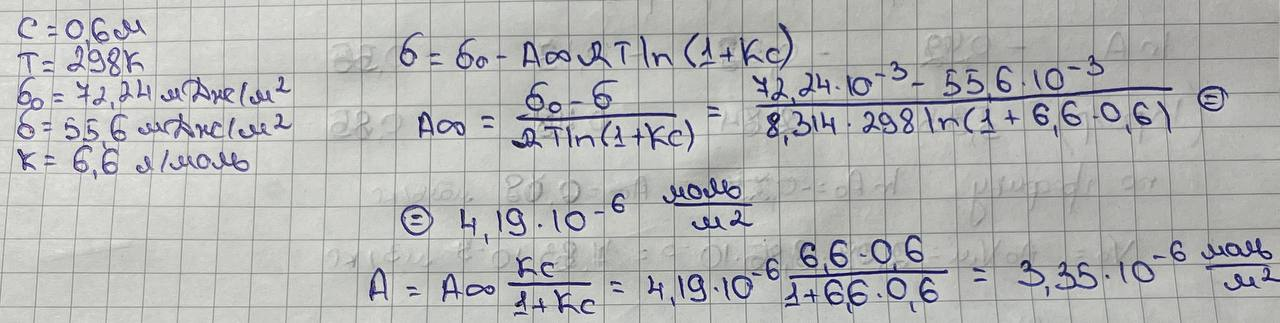 C = 0,6 м
T = 298K
б₀ = 72,24 мДж/м²
б = 55,6 мДж/м²
K = 6,6 л/моль
б = б₀ - A∞ RT ln(1+Kc)
A∞ = (б₀ - б)/(RT ln(1+Kc)) = (72,24·10⁻³ - 55,6·10⁻³)/(8,314·298 ln(1+6,6·0,6)) ⊜
⊜ 4,19·10⁻⁶ моль/м²
A = A∞ Kc/(1+Kc) = 4,19·10⁻⁶ (6,6·0,6)/(1+6,6·0,6) = 3,35·10⁻⁶ моль/м²